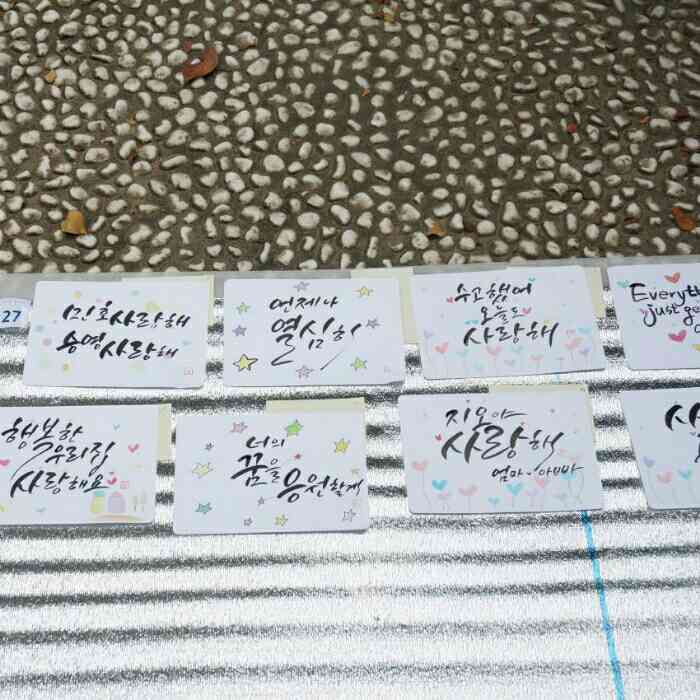 27
민호사랑해
용명사랑해
언제나
열심히
수고했어
오늘도
사랑해
행복한
우리집
사랑해요
너의
꿈을
응원할게
지오야
사랑해
엄마·아빠